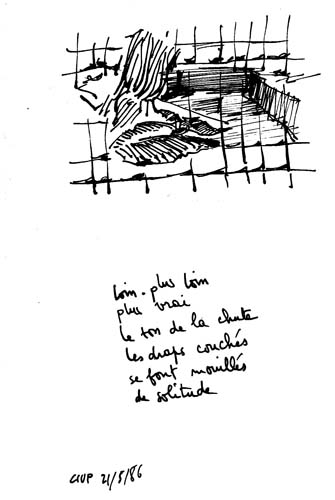 loin. plus loin
plus vrai
le ton de la chute
les draps couchés
se font mouillés
de solitude
CIUP 21/5/86